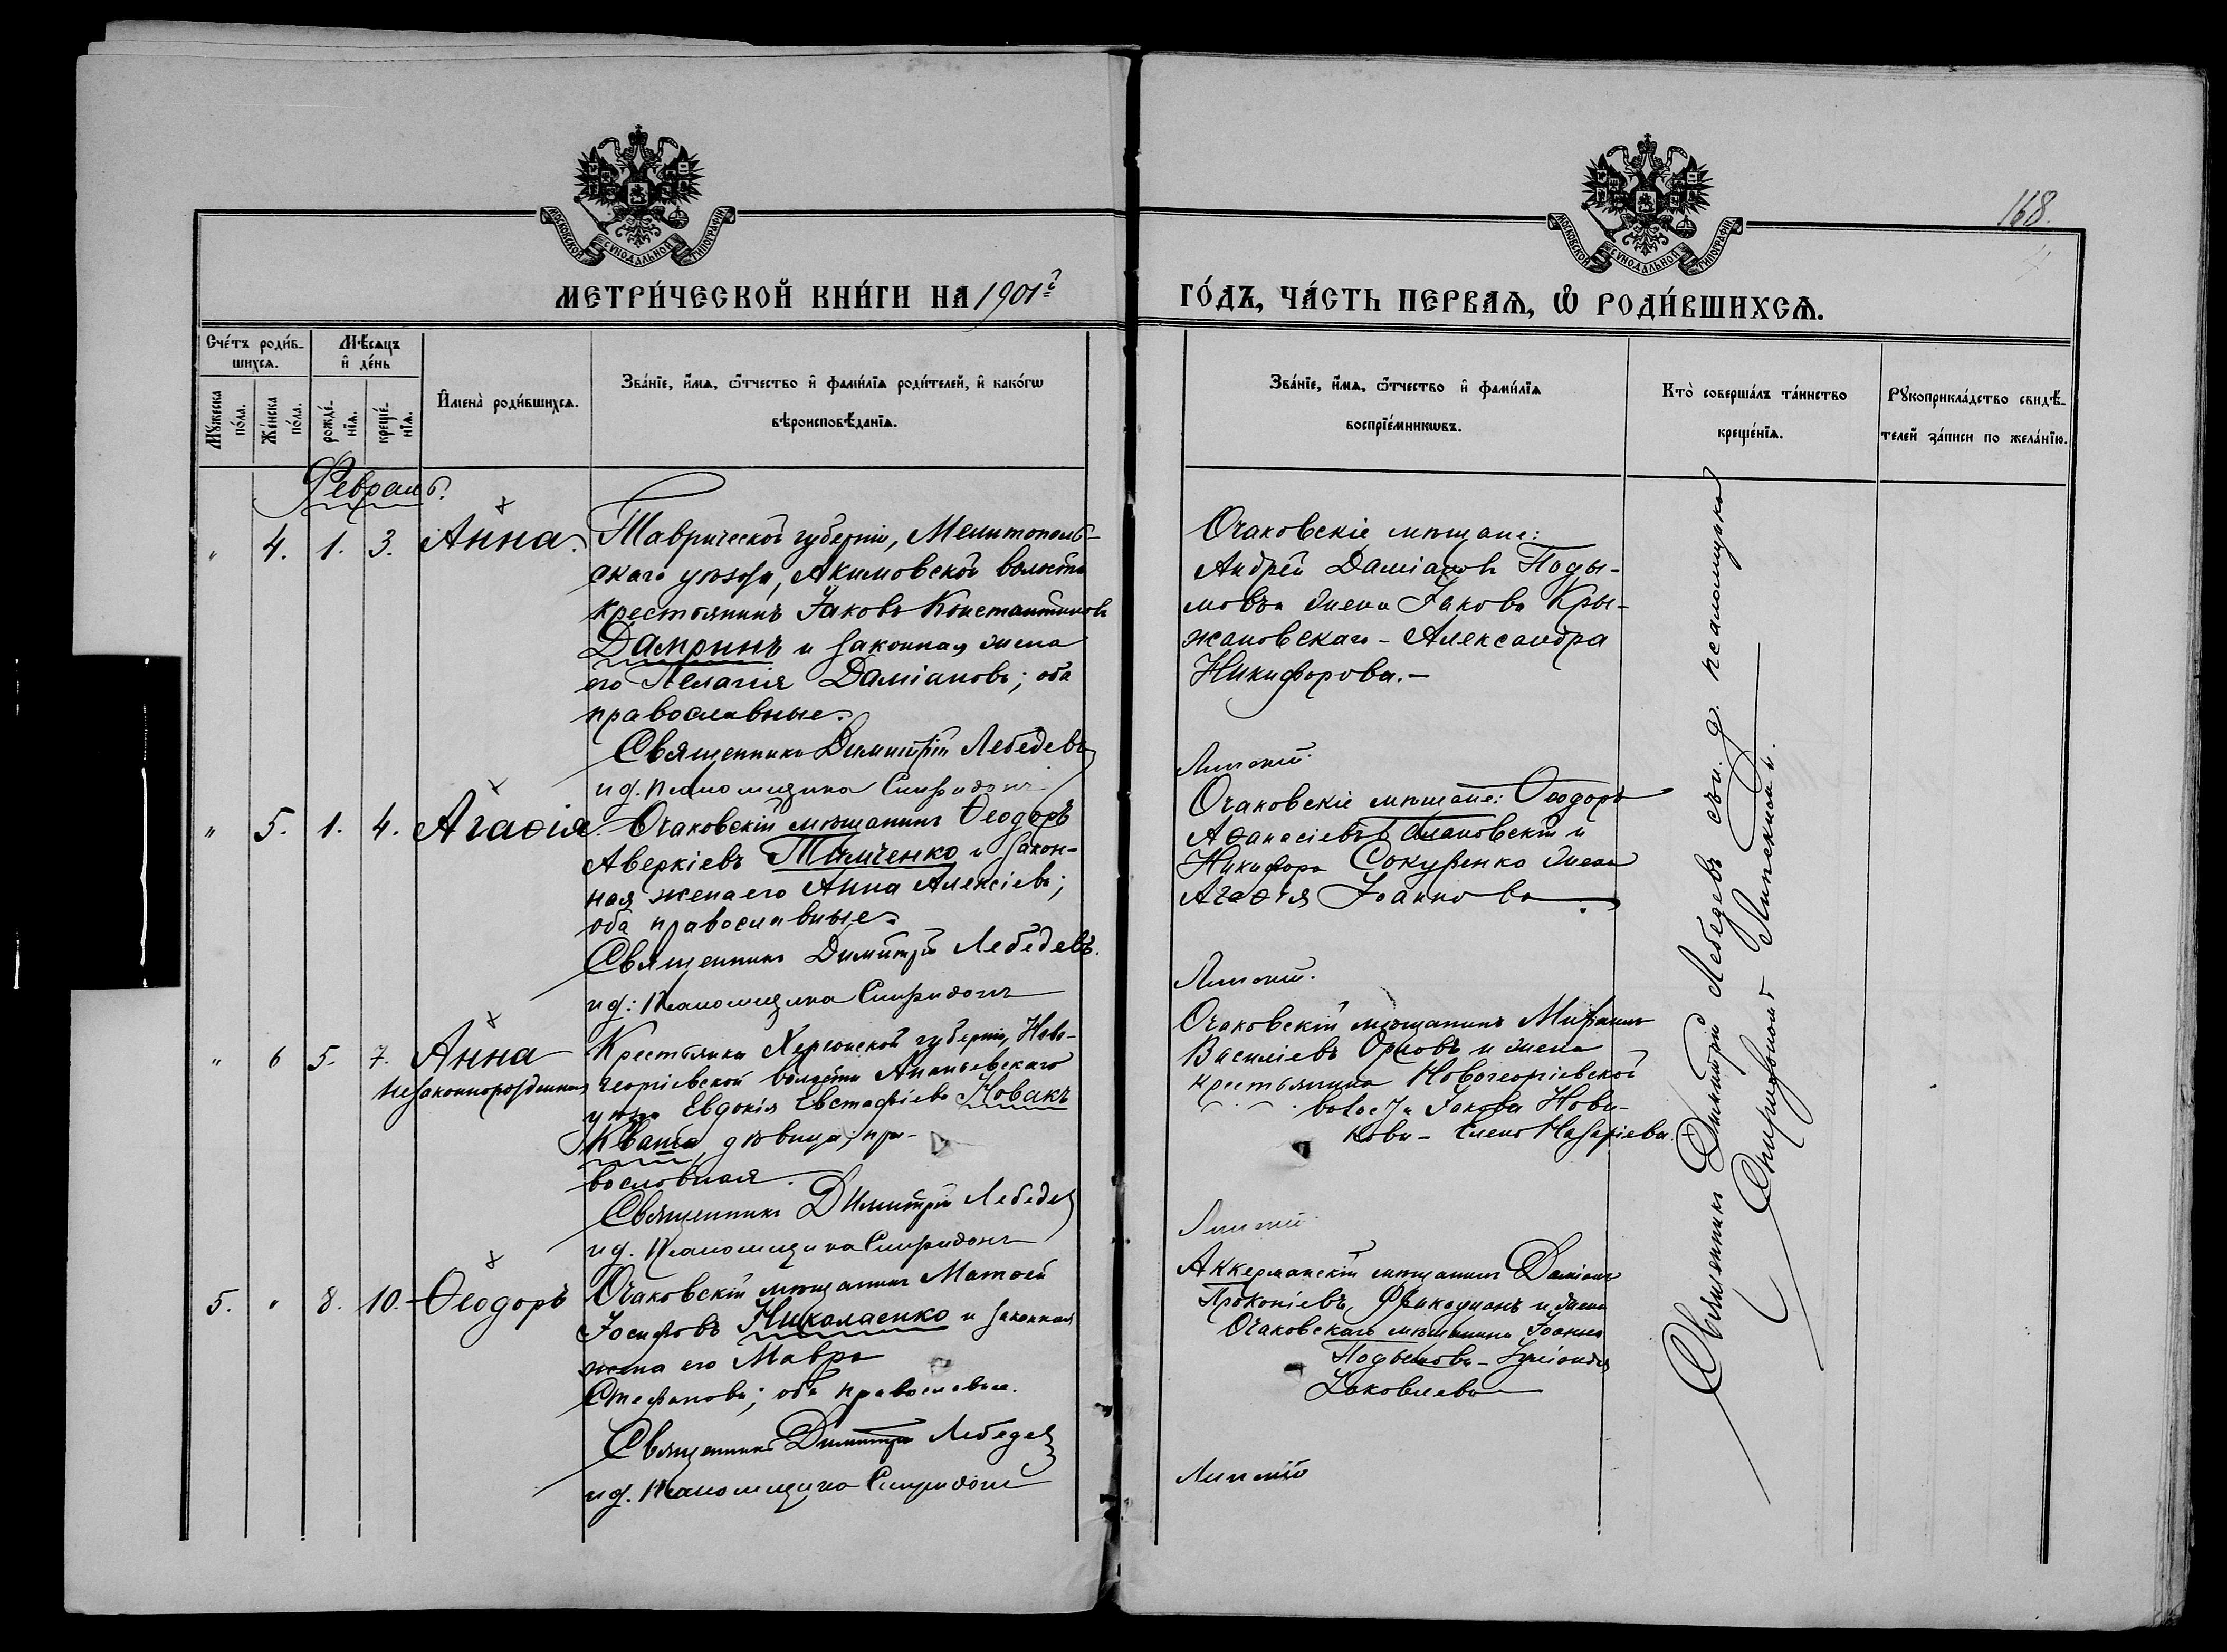 168.
МОСКОВСКОЙ СѴНОДАЛЬНОЙ ТИПОГРАФІИ
МОСКОВСКОЙ СѴНОДАЛЬНОЙ ТИПОГРАФІИ
МЕТРИ́ЧЕСКОЙ КНИ́ГИ НА 1901й
ГО́ДЪ, ЧА́СТЬ ПЕРВАѦ, Ѡ РОДИ́ВШИХСѦ.
Сче́тъ роди́в-
шихсѧ.
Мꙋжеска по́ла.
Же́нска по́ла.
Мѣ́сѧцъ
и҆ де́нь
рожде́-нїѧ.
креще́-нїѧ.
И҆мена̀ роди́вшихсѧ.
Зва́нїе, и҆́мѧ, ѻ҆́тчество и҆ фами́лїѧ роди́телей, и҆ како́гѡ
вѣроисповѣ́данїѧ.
Зва́нїе, и҆́мѧ, ѻ҆́тчество и҆ фами́лїѧ
воспрїе́мникѡвъ.
Кто̀ соверша́лъ та́инство
креще́нїѧ.
Рꙋкоприкла́дство свидѣ́-
телей за́писи по жела́нїю.
Февраль.
" 4. 1. 3. Анна.
Таврической губерніи, Мелитополь-
скаго уѣзда, Акимовской волости
крестьянинъ Іаковъ Константиновъ
Дамринъ и законная жена
его Пелагія Даміанова; оба
православные.
Священникъ Димитрій Лебедевъ
и д. псаломщика Спиридонъ
Очаковскіе мѣщане:
Андрей Даміановъ Поды-
мовъ и жена Іакова Кры-
жановскаго - Александра
Никифорова. -
Липскій.
" 5. 1. 4. Агаѳія.
Очаковскій мѣщанинъ Ѳеодоръ
Аверкіевъ Тимченко и закон-
ная жена его Анна Алексіева;
оба православные.
Священникъ Димитрій Лебедевъ.
и д: псаломщика Спиридонъ
Очаковскіе мѣщане: Ѳеодоръ
Аѳанасіевъ и
Никифора Сокуренко жена
Агаѳія Іоаннова.
Липскій.
" 6 5. 7. Анна
незаконнорожденная
Крестьянка Херсонской губерніи, Ново-
георгіевской волости Ананьевскаго
уѣзда Евдокія Евстафіева Новакъ
Кваша, дѣвица; пра-
вославная.
Священникъ Димитрій Лебедевъ
и д. псаломщика Спиридонъ
Очаковскій мѣщанинъ
Василіевъ Орловъ и жена
крестьянина Новогеоргіевской
волости Іакова Нови-
кова - Елена Назаріева.
Липскій
5. " 8. 10. Ѳеодоръ
Очаковскій мѣщанинъ Матѳей
Іосифовъ Николаенко и законная
жена его Мавра
Стефанова; оба православные.
Священникъ Димитрій Лебедевъ
и д. псаломщика Спиридонъ
Аккерманскій мѣщанинъ Даміанъ
Прокопіевъ и жена
Очаковскаго мѣщанина Іоанна
Подымова -
Іаковлева
Липскій
Священникъ Димитрій Лебедевъ съ и. д. псаломщика
Спиридономъ Липскимъ.